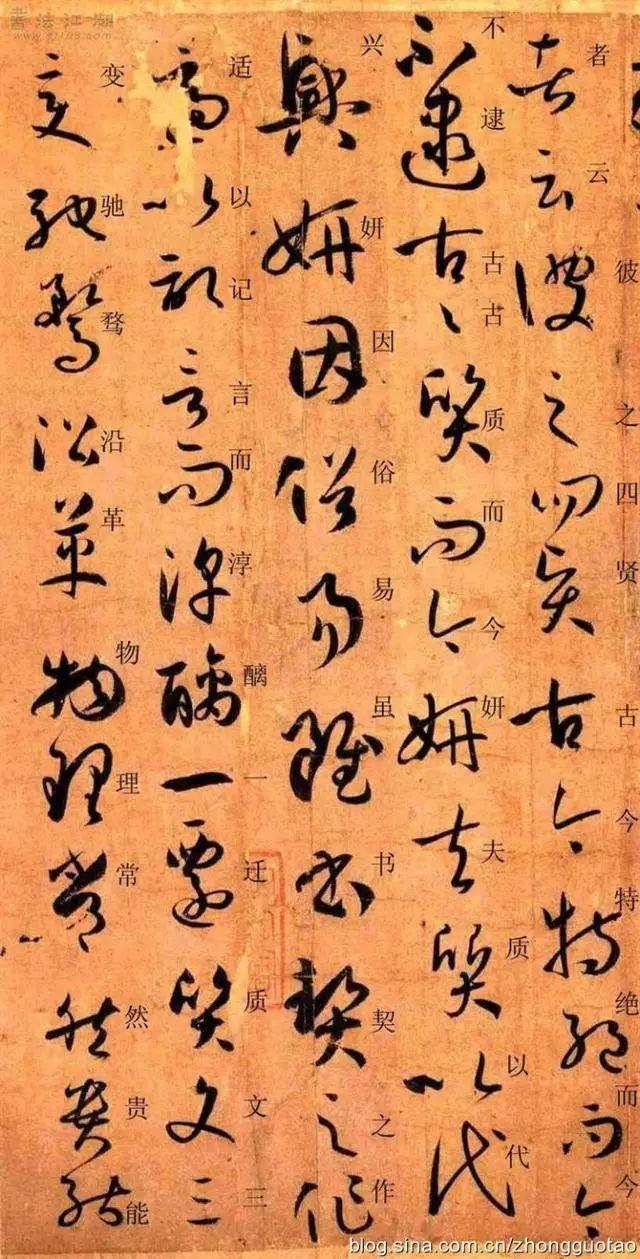 书法江湖
者云彼之四贤古今特绝而今
不逮古古质而今妍夫质以代
兴妍因俗易虽书契之作
适以记言而淳醨一迁质文三
变驰骛沿革物理常然贵能
blog.sina.com.cn/zhongguotao